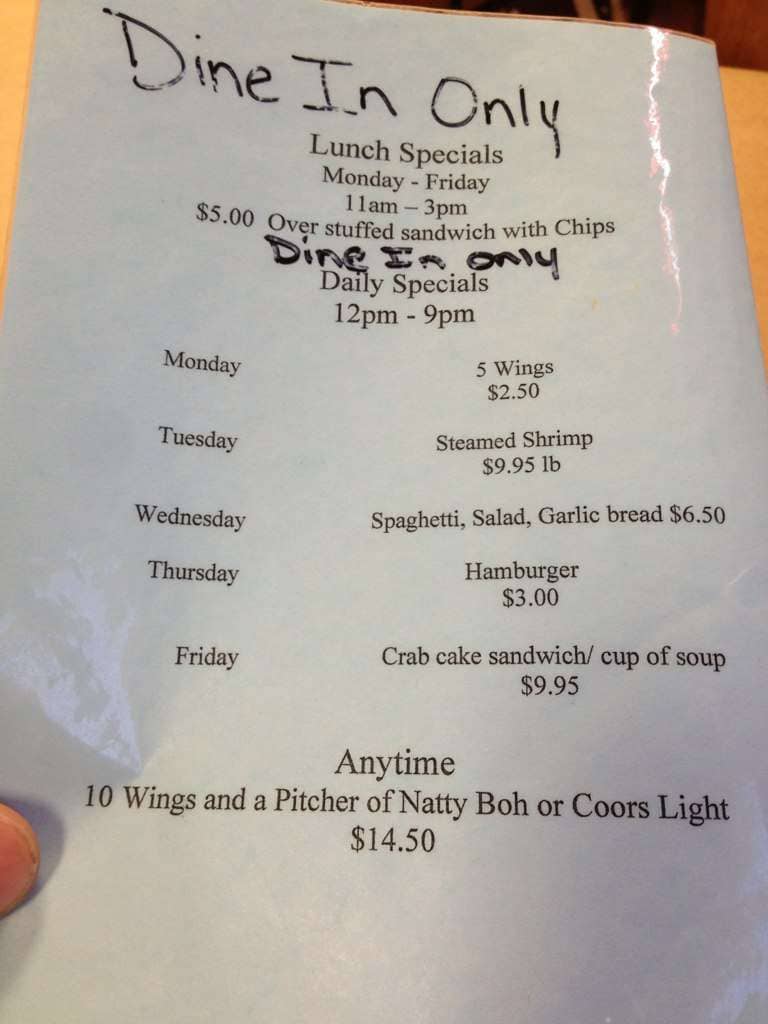 Dine In Only
Lunch Specials
Monday - Friday
11am – 3pm
$5.00 Over stuffed sandwich with Chips
Dine In only
Daily Specials
12pm - 9pm
Monday 5 Wings
$2.50
Tuesday Steamed Shrimp
$9.95 lb
Wednesday Spaghetti, Salad, Garlic bread $6.50
Thursday Hamburger
$3.00
Friday Crab cake sandwich/ cup of soup
$9.95
Anytime
10 Wings and a Pitcher of Natty Boh or Coors Light
$14.50